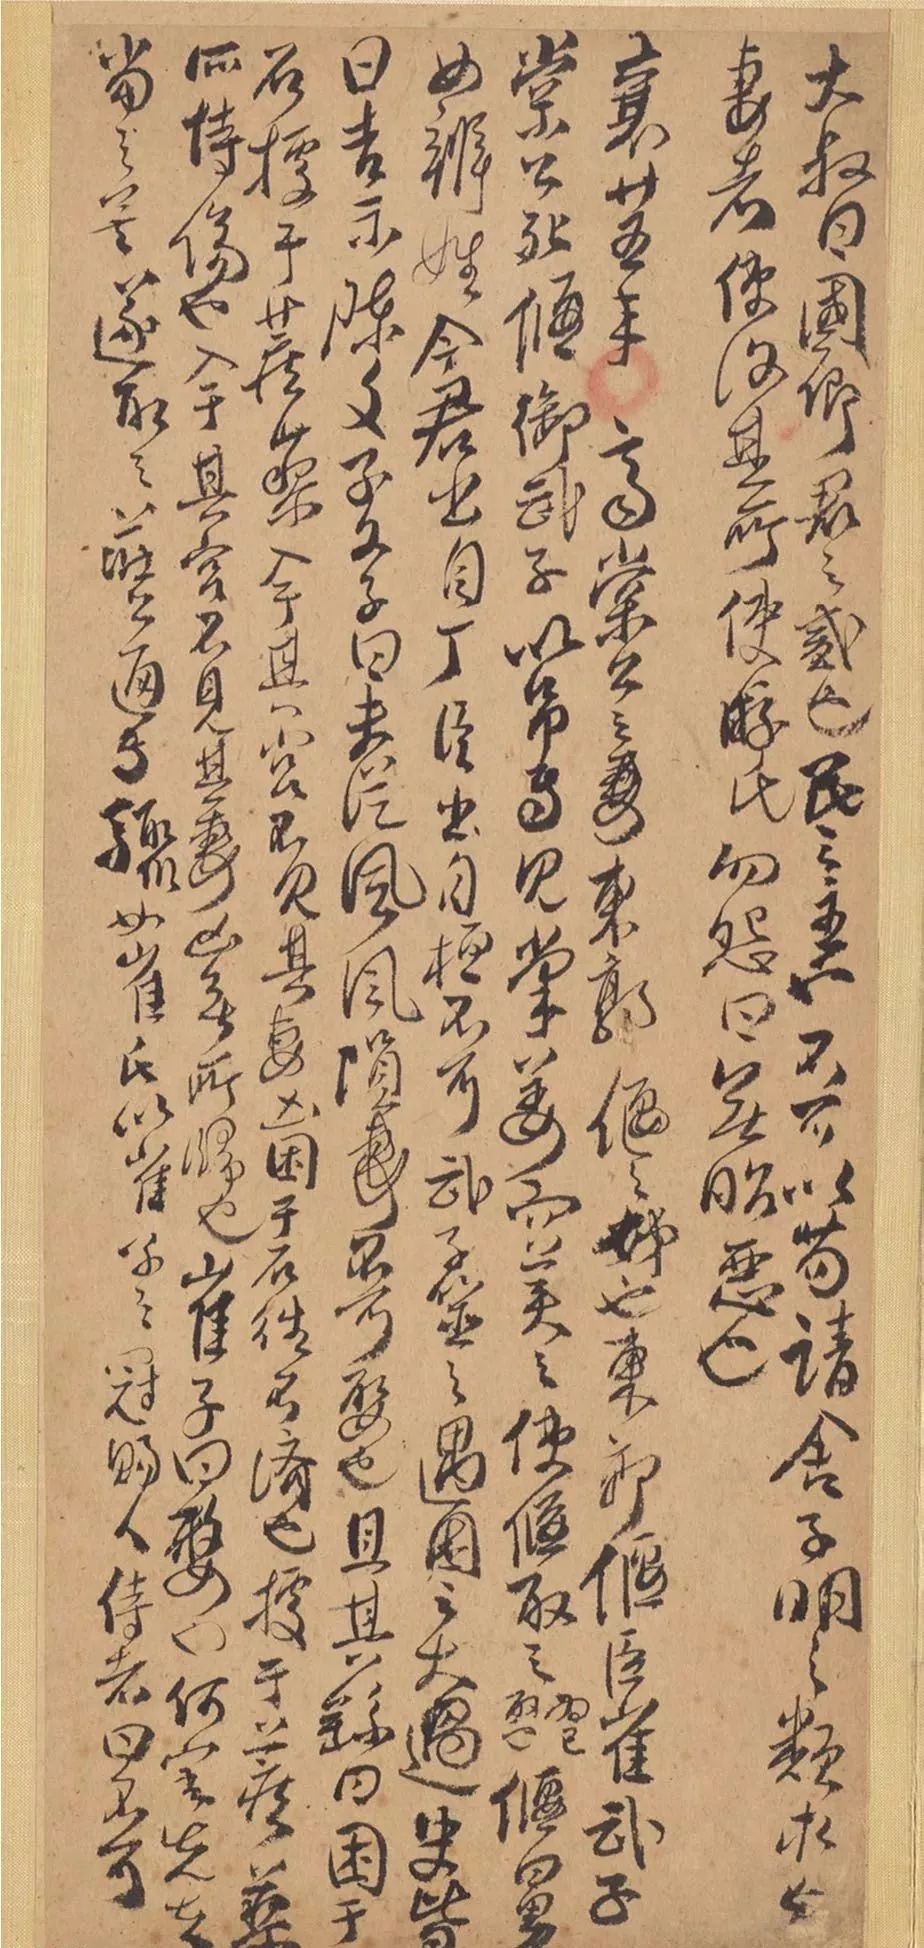 大叔曰國卿君之貳也民之主也不可以苟請舍子明之類求亡
妻者使復其所使游氏勿怨曰無昭惡也
襄廿五年齊棠公之妻東郭偃之姊也東郭偃臣崔武子
棠公死偃御武子以弔焉見棠姜而美之使偃取之偃曰男
女辨姓今君出自丁臣出自桓不可武子筮之遇困之大過史皆
曰吉示陳文子文子曰夫從風風隕妻不可娶也且其繇曰困于
石據于蒺藜入于其宮不見其妻凶困于石往不濟也據于蒺藜
所恃傷也入于其宮不見其妻凶無所歸也崔子曰嫠也何害先夫
當之矣遂取之莊公通焉驟如崔氏以崔子之冠賜人侍者曰不可